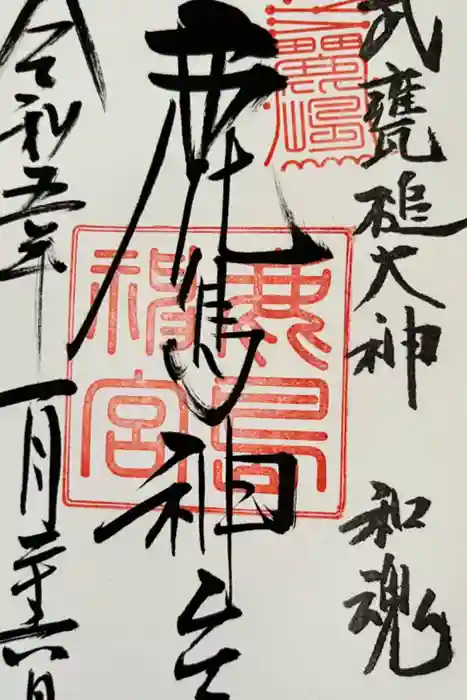 武甕槌大神 和魂
鹿島神宮
令和五年一月二十六日
鹿島神宮